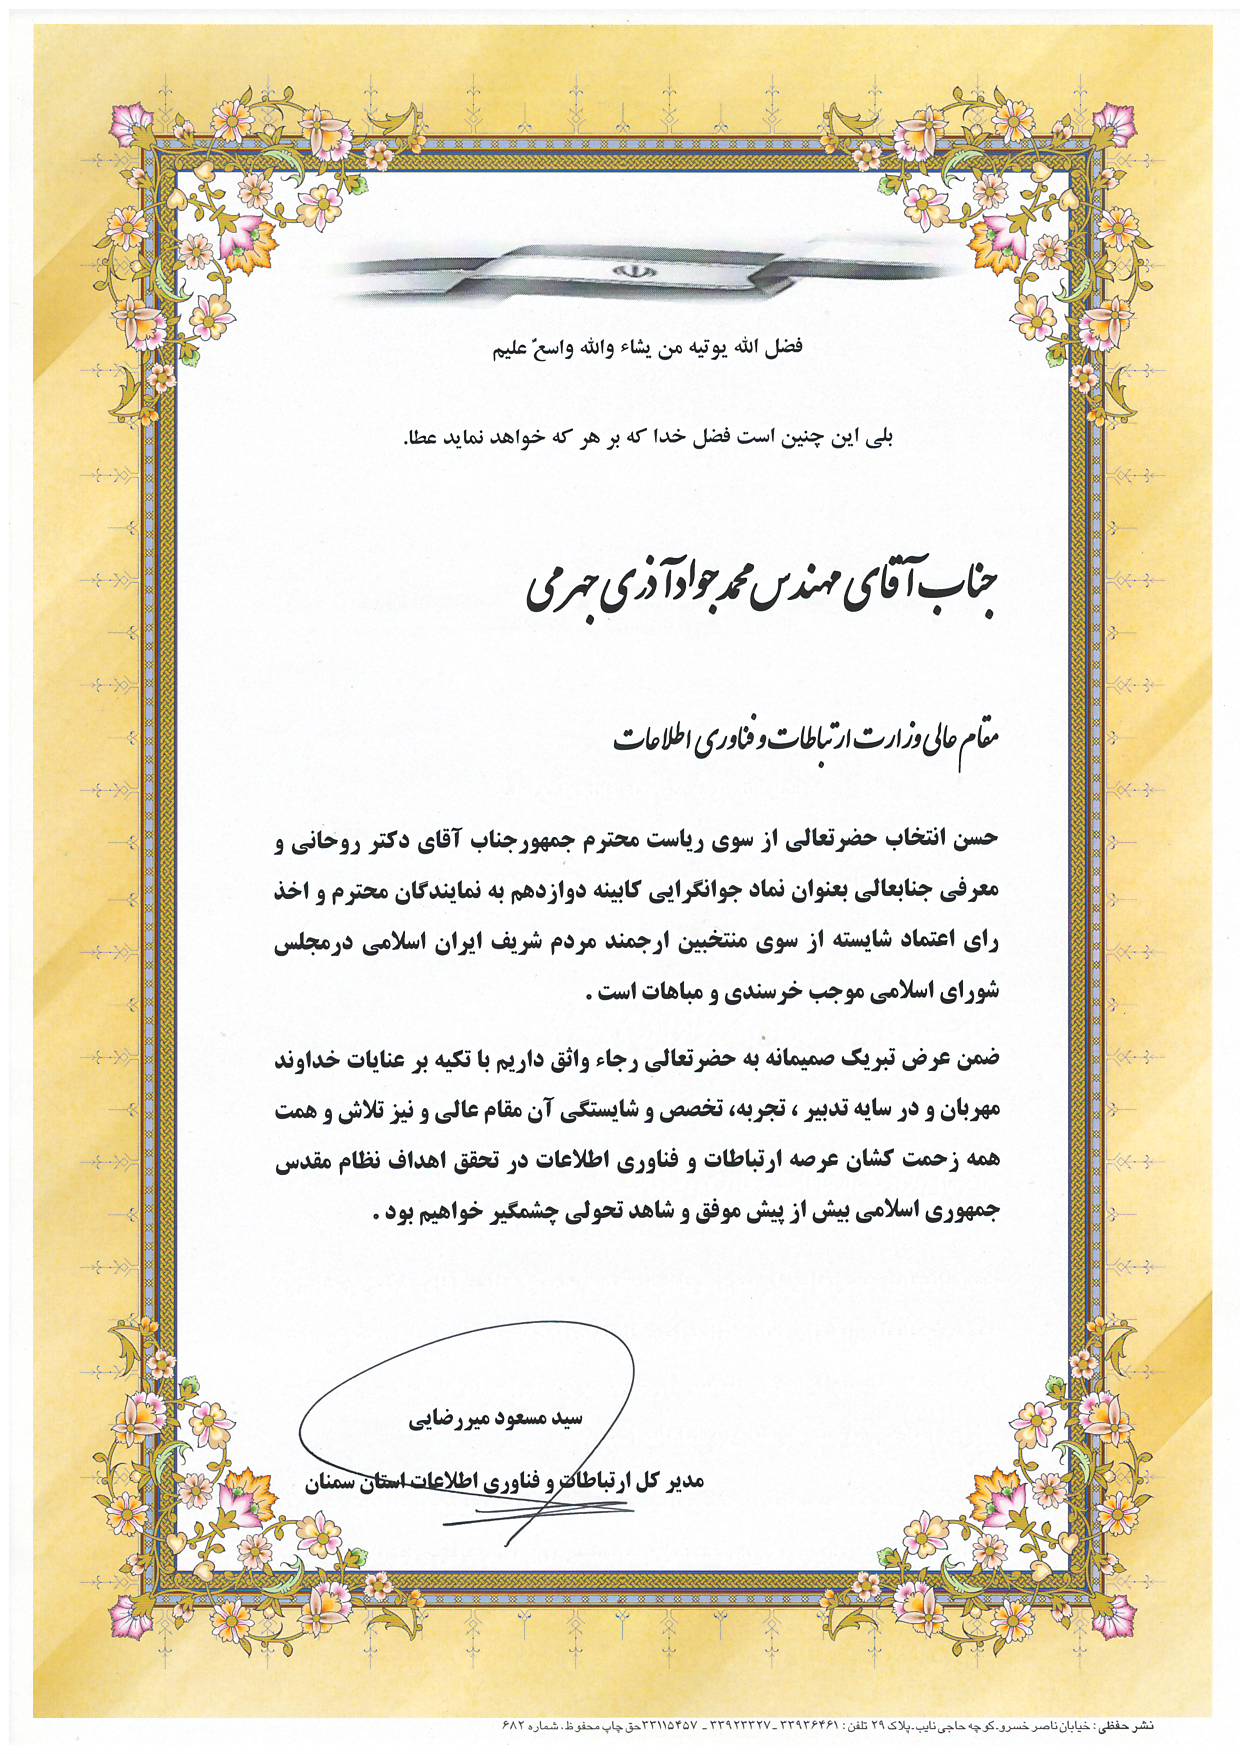 فضل الله یوتیه من یشاء والله واسعٌ علیم
بلی این چنین است فضل خدا که بر هر که خواهد نماید عطا.
جناب آقای مهندس محمد جواد آذری جهرمی
مقام عالی وزارت ارتباطات و فناوری اطلاعات
حسن انتخاب حضرتعالی از سوی ریاست محترم جمهورجناب آقای دکتر روحانی و
معرفی جنابعالی بعنوان نماد جوانگرایی کابینه دوازدهم به نمایندگان محترم و اخذ
رای اعتماد شایسته از سوی منتخبین ارجمند مردم شریف ایران اسلامی درمجلس
شورای اسلامی موجب خرسندی و مباهات است .
ضمن عرض تبریک صمیمانه به حضرتعالی رجاء واثق داریم با تکیه بر عنایات خداوند
مهربان و در سایه تدبیر ، تجربه، تخصص و شایستگی آن مقام عالی و نیز تلاش و همت
همه زحمت کشان عرصه ارتباطات و فناوری اطلاعات در تحقق اهداف نظام مقدس
جمهوری اسلامی بیش از پیش موفق و شاهد تحولی چشمگیر خواهیم بود .
سید مسعود میررضایی
مدیر کل ارتباطات و فناوری اطلاعات استان سمنان
نشر حفظی : خیابان ناصر خسرو_کوچه حاجی نایب_پلاک ۲۹ تلفن : ۳۳۹۳۶۴۶۱ _ ۳۳۹۲۳۳۲۷ _ ۳۳۱۱۵۴۵۷ حق چاپ محفوظ، شماره ۶۸۲